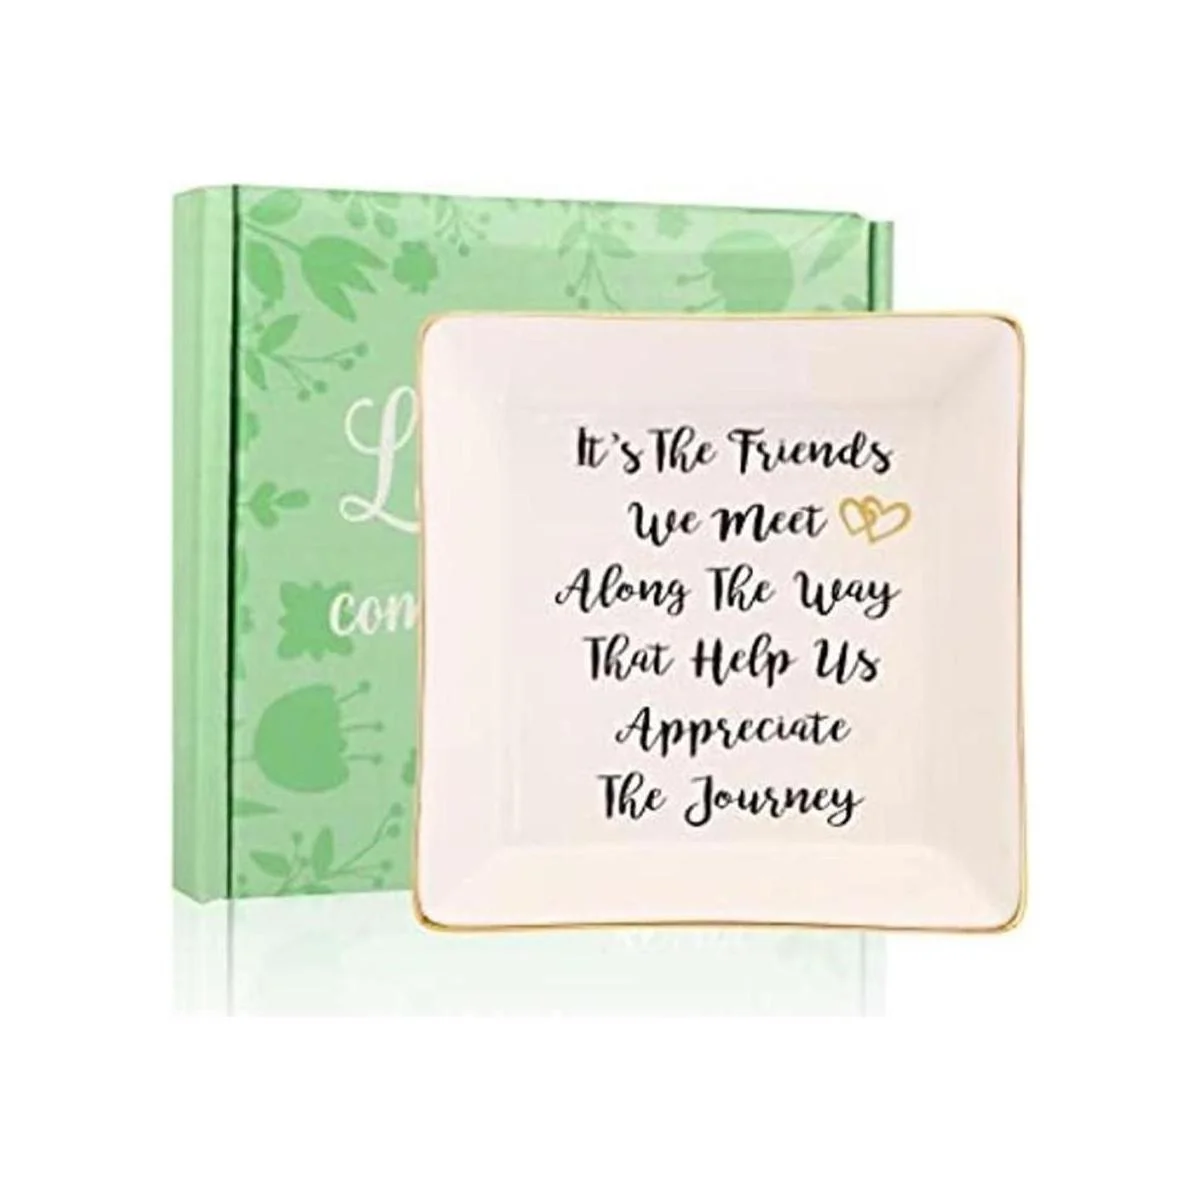 It's The Friends
We Meet
Along The Way
That Help Us
Appreciate
The Journey